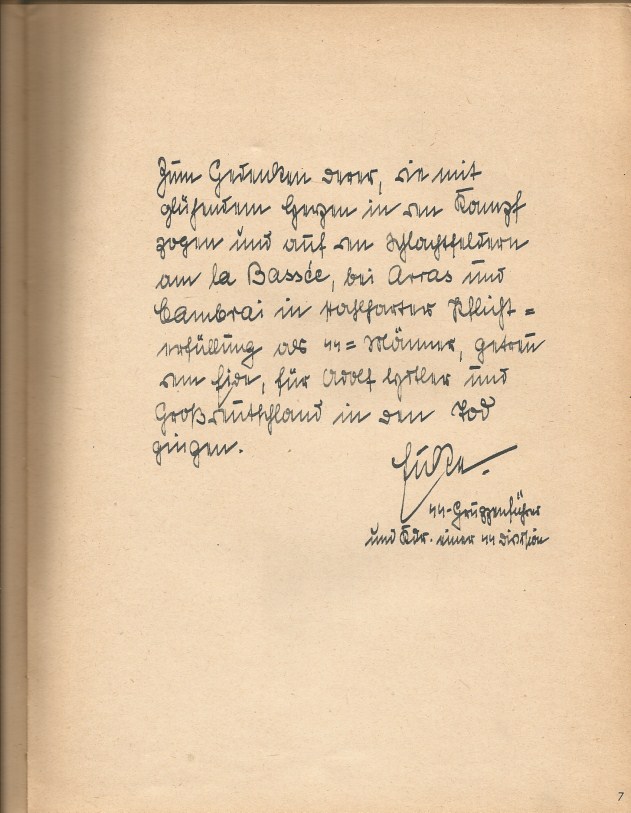 Zum Gedenken derer, die mit
glühendem Herzen in den Kampf
zogen und auf den Schlachtfeldern
am la Bassée, bei Arras und
Cambrai in stahlharter Pflicht=
erfüllung als SS=Männer, getreu
dem Eide, für Adolf Hitler und
Großdeutschland in den Tod
gingen.
Eicke.
SS-Gruppenführer
und Kdr. einer SS Division
7